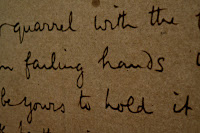 quarrel with the
failing hands
be yours to hold it